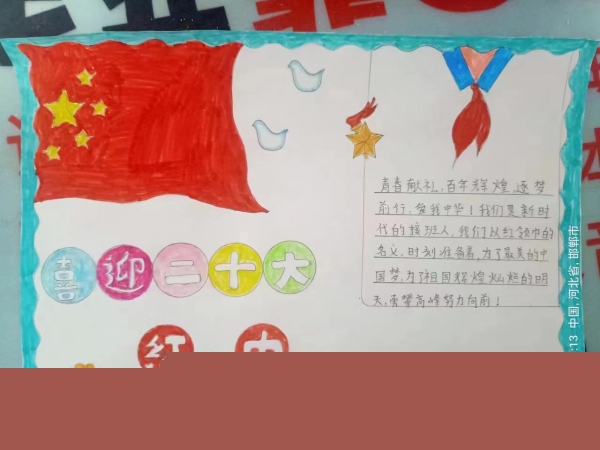 喜迎二十大
红
青春献礼,百年辉煌逐梦
前行,复我中华!我们是新时
代的接班人,我们以红领巾的
名义,时刻准备着,为了最美的中
国梦,为了祖国辉煌灿烂的明
天,勇攀高峰努力向前!
:13 中国,河北省,邯郸市